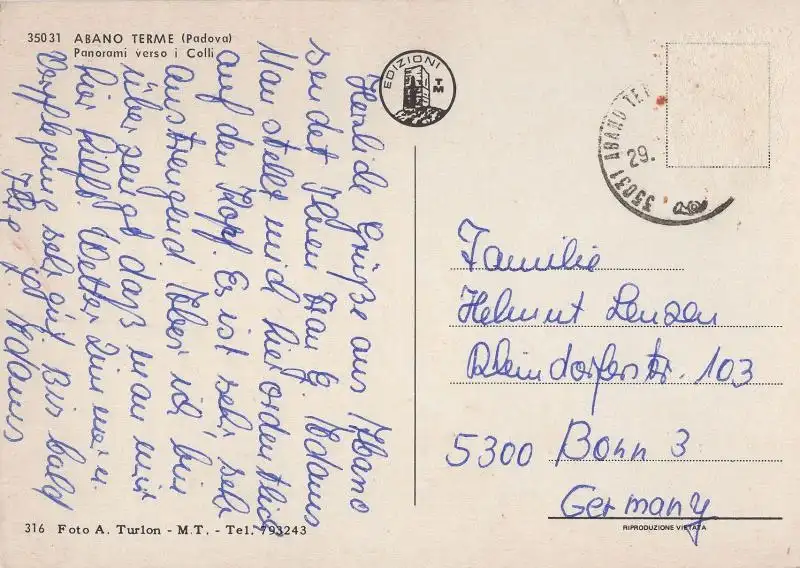 35031 ABANO TERME (Padova)
Panorami verso i Colli
EDIZIONI
TM
Herzliche Grüße aus Abano
sendet Ihnen Frau G. Adams
Man stellt mich hier ordentlich
auf den Kopf. Es ist sehr, sehr
anstrengend. Aber ich bin
überzeugt daß man mir
hier hilft. Wetter Zimmer u.
Verpflegung sehr gut. Bis bald
Ihre G. Adams
35031 ABANO TE
29.
Familie
Helmut Lenzen
Rheindorferstr. 103
5300 Bonn 3
Germany
316 Foto A. Turlon - M.T. - Tel. 793243
RIPRODUZIONE VIETATA